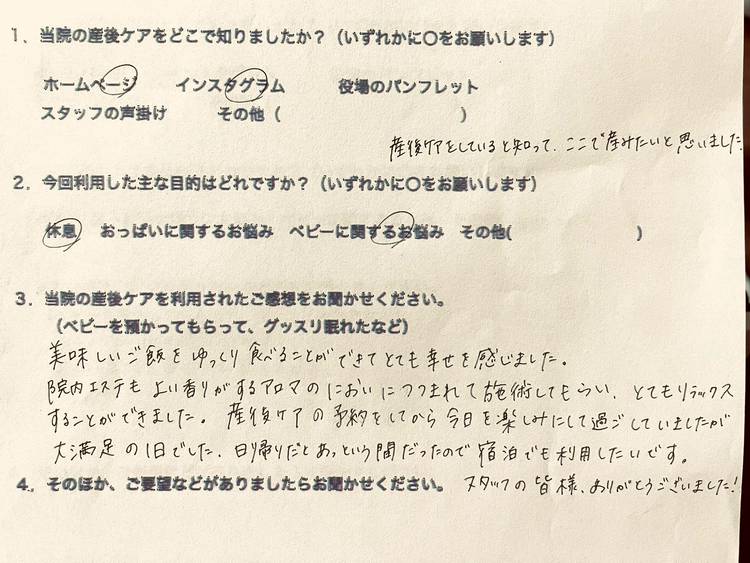 1、当院の産後ケアをどこで知りましたか?(いずれかに〇をお願いします)
ホームページ インスタグラム 役場のパンフレット
スタッフの声掛け その他( )
産後ケアをしていると知って、ここで産みたいと思いました
2．今回利用した主な目的はどれですか?(いずれかに〇をお願いします)
休息 おっぱいに関するお悩み ベビーに関するお悩み その他( )
3．当院の産後ケアを利用されたご感想をお聞かせください。
(ベビーを預かってもらって、グッスリ眠れたなど)
美味しいご飯をゆっくり食べることができてとても幸せを感じました。
院内エステもよい香りがするアロマのにおいにつつまれて施術してもらい、とてもリラックス
することができました。産後ケアの予約をしてから今日を楽しみにして過ごしていましたが
大満足の1日でした。日帰りだとあっという間だったので宿泊でも利用したいです。
4．そのほか、ご要望などがありましたらお聞かせください。 スタッフの皆様、ありがとうございました!